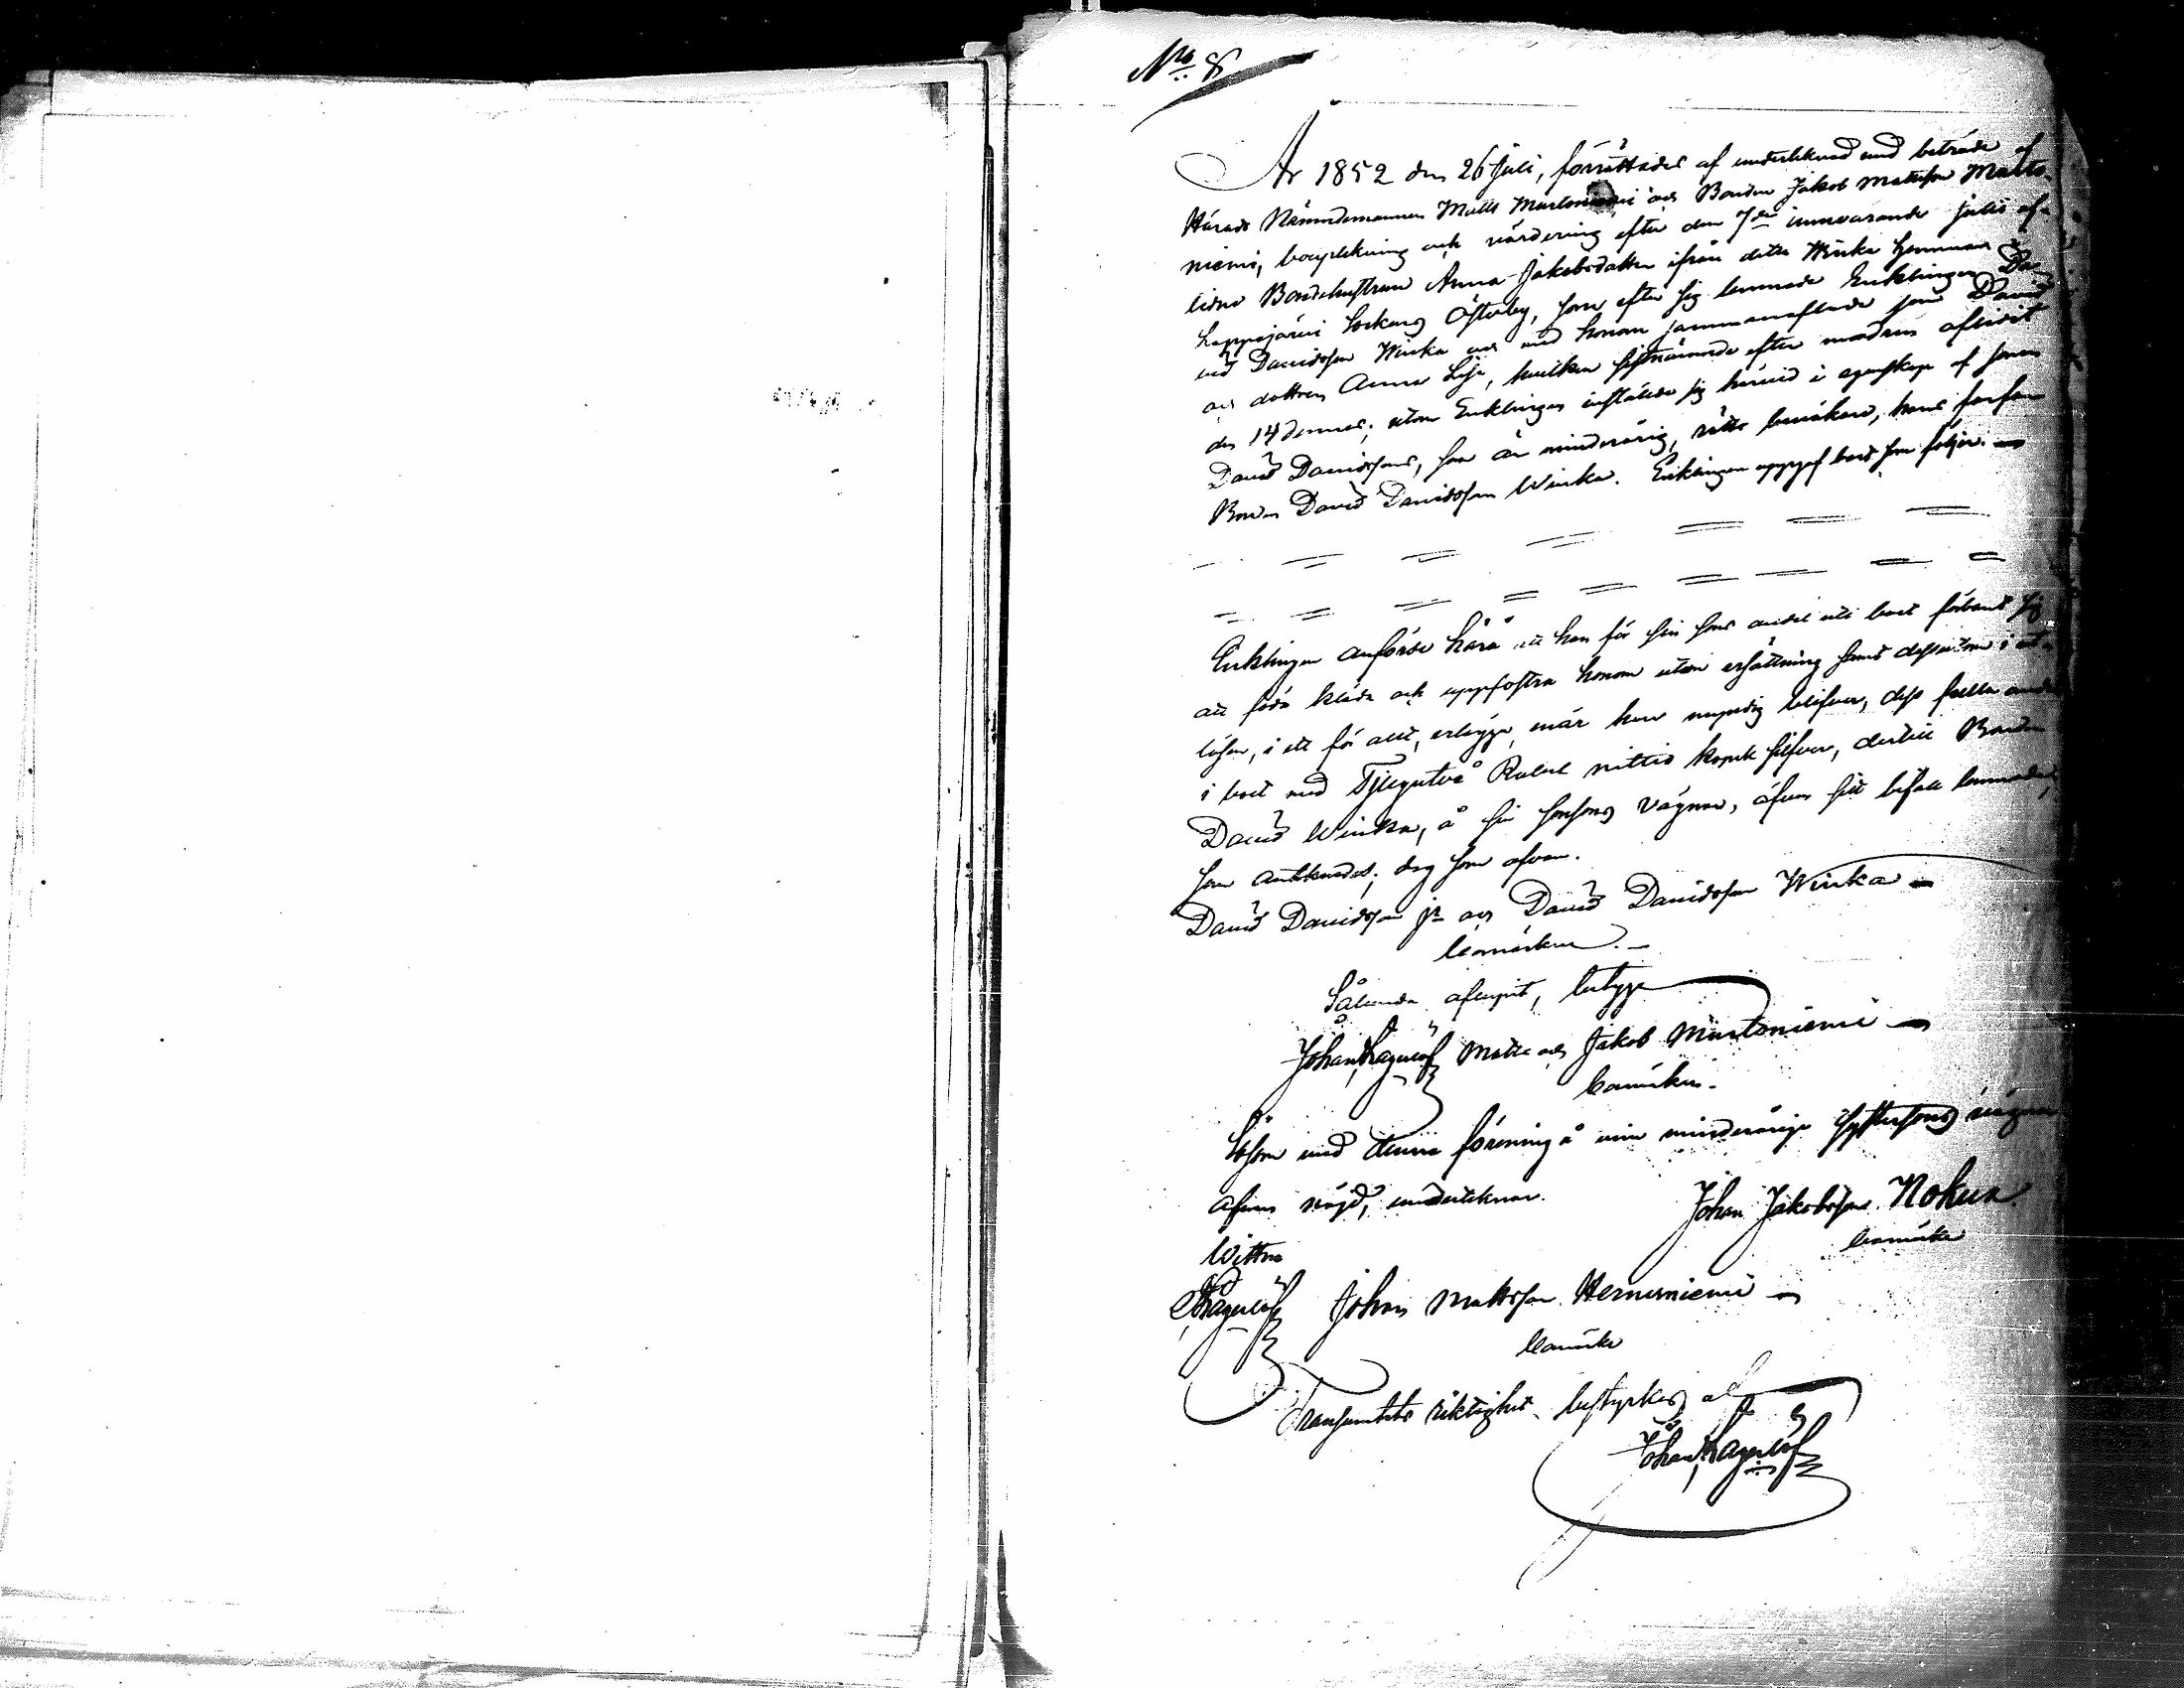 No 8
År 1852 den 26 Juli, förrättades af undertecknad med biträde af
Härads Nämndemannen Matts Martoniemi och Bonden Jakob Mattsson Marto-
niemi, bouptekning och värdering efter den 7de innevarande Julii af-
lidne Bondehustrun Anna Jakobsdotter ifrån detta Winka hemman i
Lappajärvi Sockens Österby, som efter sig lemnade Enklingen Da-
vid Davidsson Winka och med honom sammanaflade son David
och dottren Anna Lisa, hvilken sistnämnde efter modren aflidit
den 14 dennes; utom Enklingen inställde sig härvid i egenskap af sonen
David Davidssons, som är minderårig, rätts bevakare, hans farfar
Bonden David Davidsson Winka. Enklingen uppgaf boet som följer.
Enklingen anförde härå att han för sin sons andel uti boet förband sig
att föda kläda och uppfostra honom utan ersättning samt dessutom i ut-
lösen, i ett för allt, erlägga, när han myndig blifver, dess hela andel
i boet med Tjugutvå Rubel nittio kopek silfver, dertill Bonden
David Winka, å sin sonsons vägnar, äfven sitt bifall lemnade,
som antecknades; dag som ofvan.
David Davidsson jr och David Davidsson Winka
bomärken.
Sålunda afslutit, betyga
Johan Lagerlöf Matts och Jakob Martoniemi
bomärken.
Såsom med denna förening å min minderårige systersons vägnar
äfven nöjd, undertecknar.
Johan Jakobsson Nokua
bomärke
Wittna
Lagerlöf Johan Mattsson Hernesniemi
bomärke
Transumtets riktighet bestyrkes af
Johan Lagerlöf